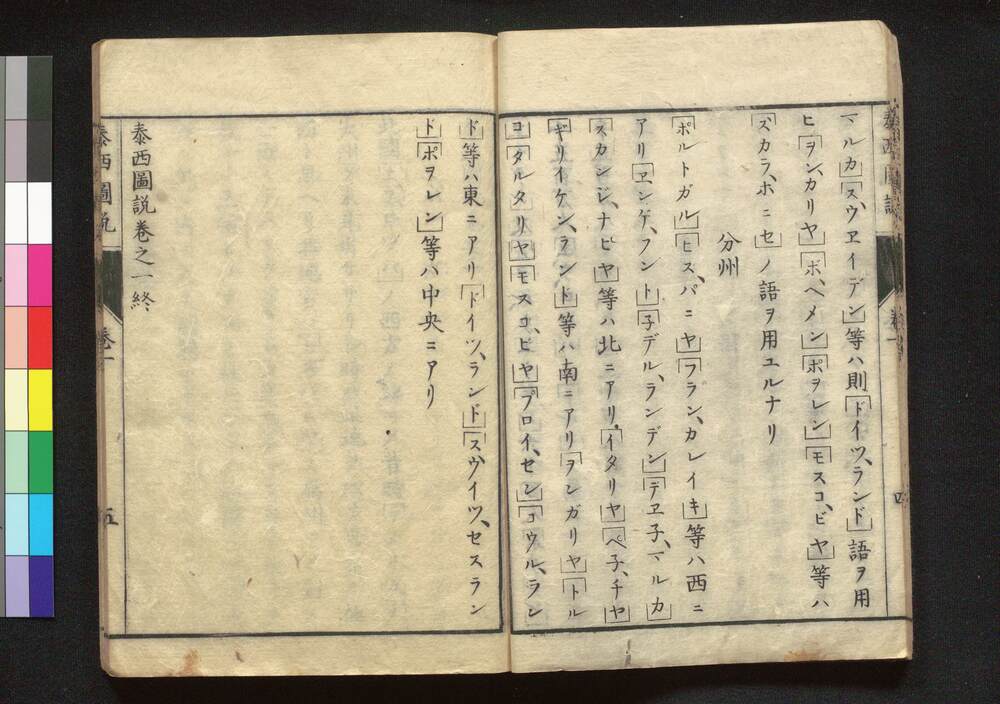 マルカ」「スウヱイデン」等ハ則「ドイツ、ランド」語ヲ用
ヒ「ヲン、カリヤ」「ボ、ヘメン」「ポヲレン」「モスコ、ビヤ」等ハ
「スカラ、ホニセ」ノ語ヲ用ユルナリ
分州
「ポルトガル」「ヒス、パニヤ」「フラン、カレイキ」等ハ西ニ
アリ「ヱンゲ、フント」「子デル、ランデン」「デヱ子、マルカ」
「スカンジ、ナビヤ」等ハ北ニアリ「イタリヤ」「ペ子、チヤ」
「ギリイケン、ラント」等ハ南ニアリ「ヲンガリヤ」「トル
コ」「タルタリヤ」「モスコ、ビヤ」「プロイ、セン」「コウル、ラン
ド」等ハ東ニアリ「ドイツ、ランド」「スヴイツ、セスラン
ド」「ポヲレン」等ハ中央ニアリ
泰西圖説巻之一終
泰西圖説
巻一
五
泰西圖説
巻一
四